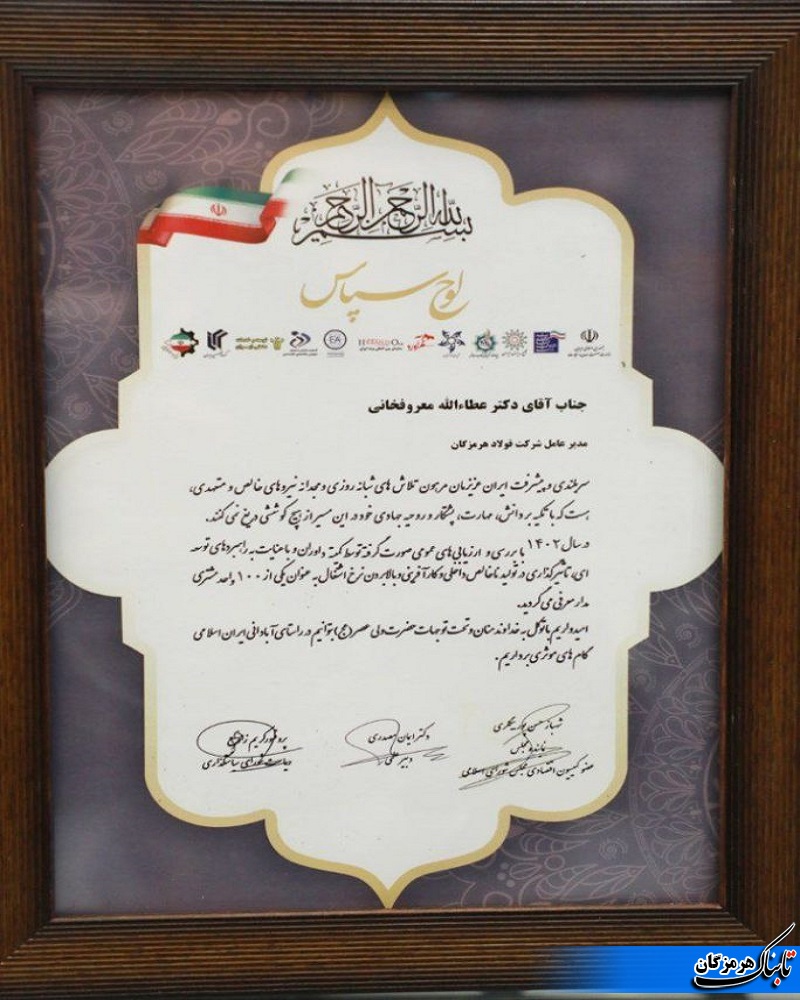 بسم الله الرحمن الرحیم
لوح سپاس
EA
جناب آقای دکتر عطاءالله معروفخانی
مدیر عامل شرکت فولاد هرمزگان
سربلندی و پیشرفت ایران عزیزمان مرهون تلاش های شبانه روزی و مجدانه نیروهای خالص و متعهدی،
هست که با تکیه بر دانش، مهارت، پشتکار و روحیه جهادی خود در این مسیر از هیچ کوششی دریغ نمی کنند.
در سال ۱۴۰۲ با بررسی و ارزیابی های عمومی صورت گرفته توسط کمیته داوران و با عنایت به راهبردهای توسعه
ای، تاثیرگذاری در تولید ناخالص داخلی و کارآفرینی و بالا بردن نرخ اشتغال به عنوان یکی از ۱۰۰ واحد مشتری
مدار معرفی می گردید.
امیدواریم با توکل به خداوند منان و تحت توجهات حضرت ولی عصر (عج) بتوانیم در راستای آبادانی ایران اسلامی
گام های موثری برداریم.
شهباز حسن پور بیگلری
نماینده مجلس
عضو کمیسیون اقتصادی مجلس شورای اسلامی
دبیر علمی
تابناک هرمزگان